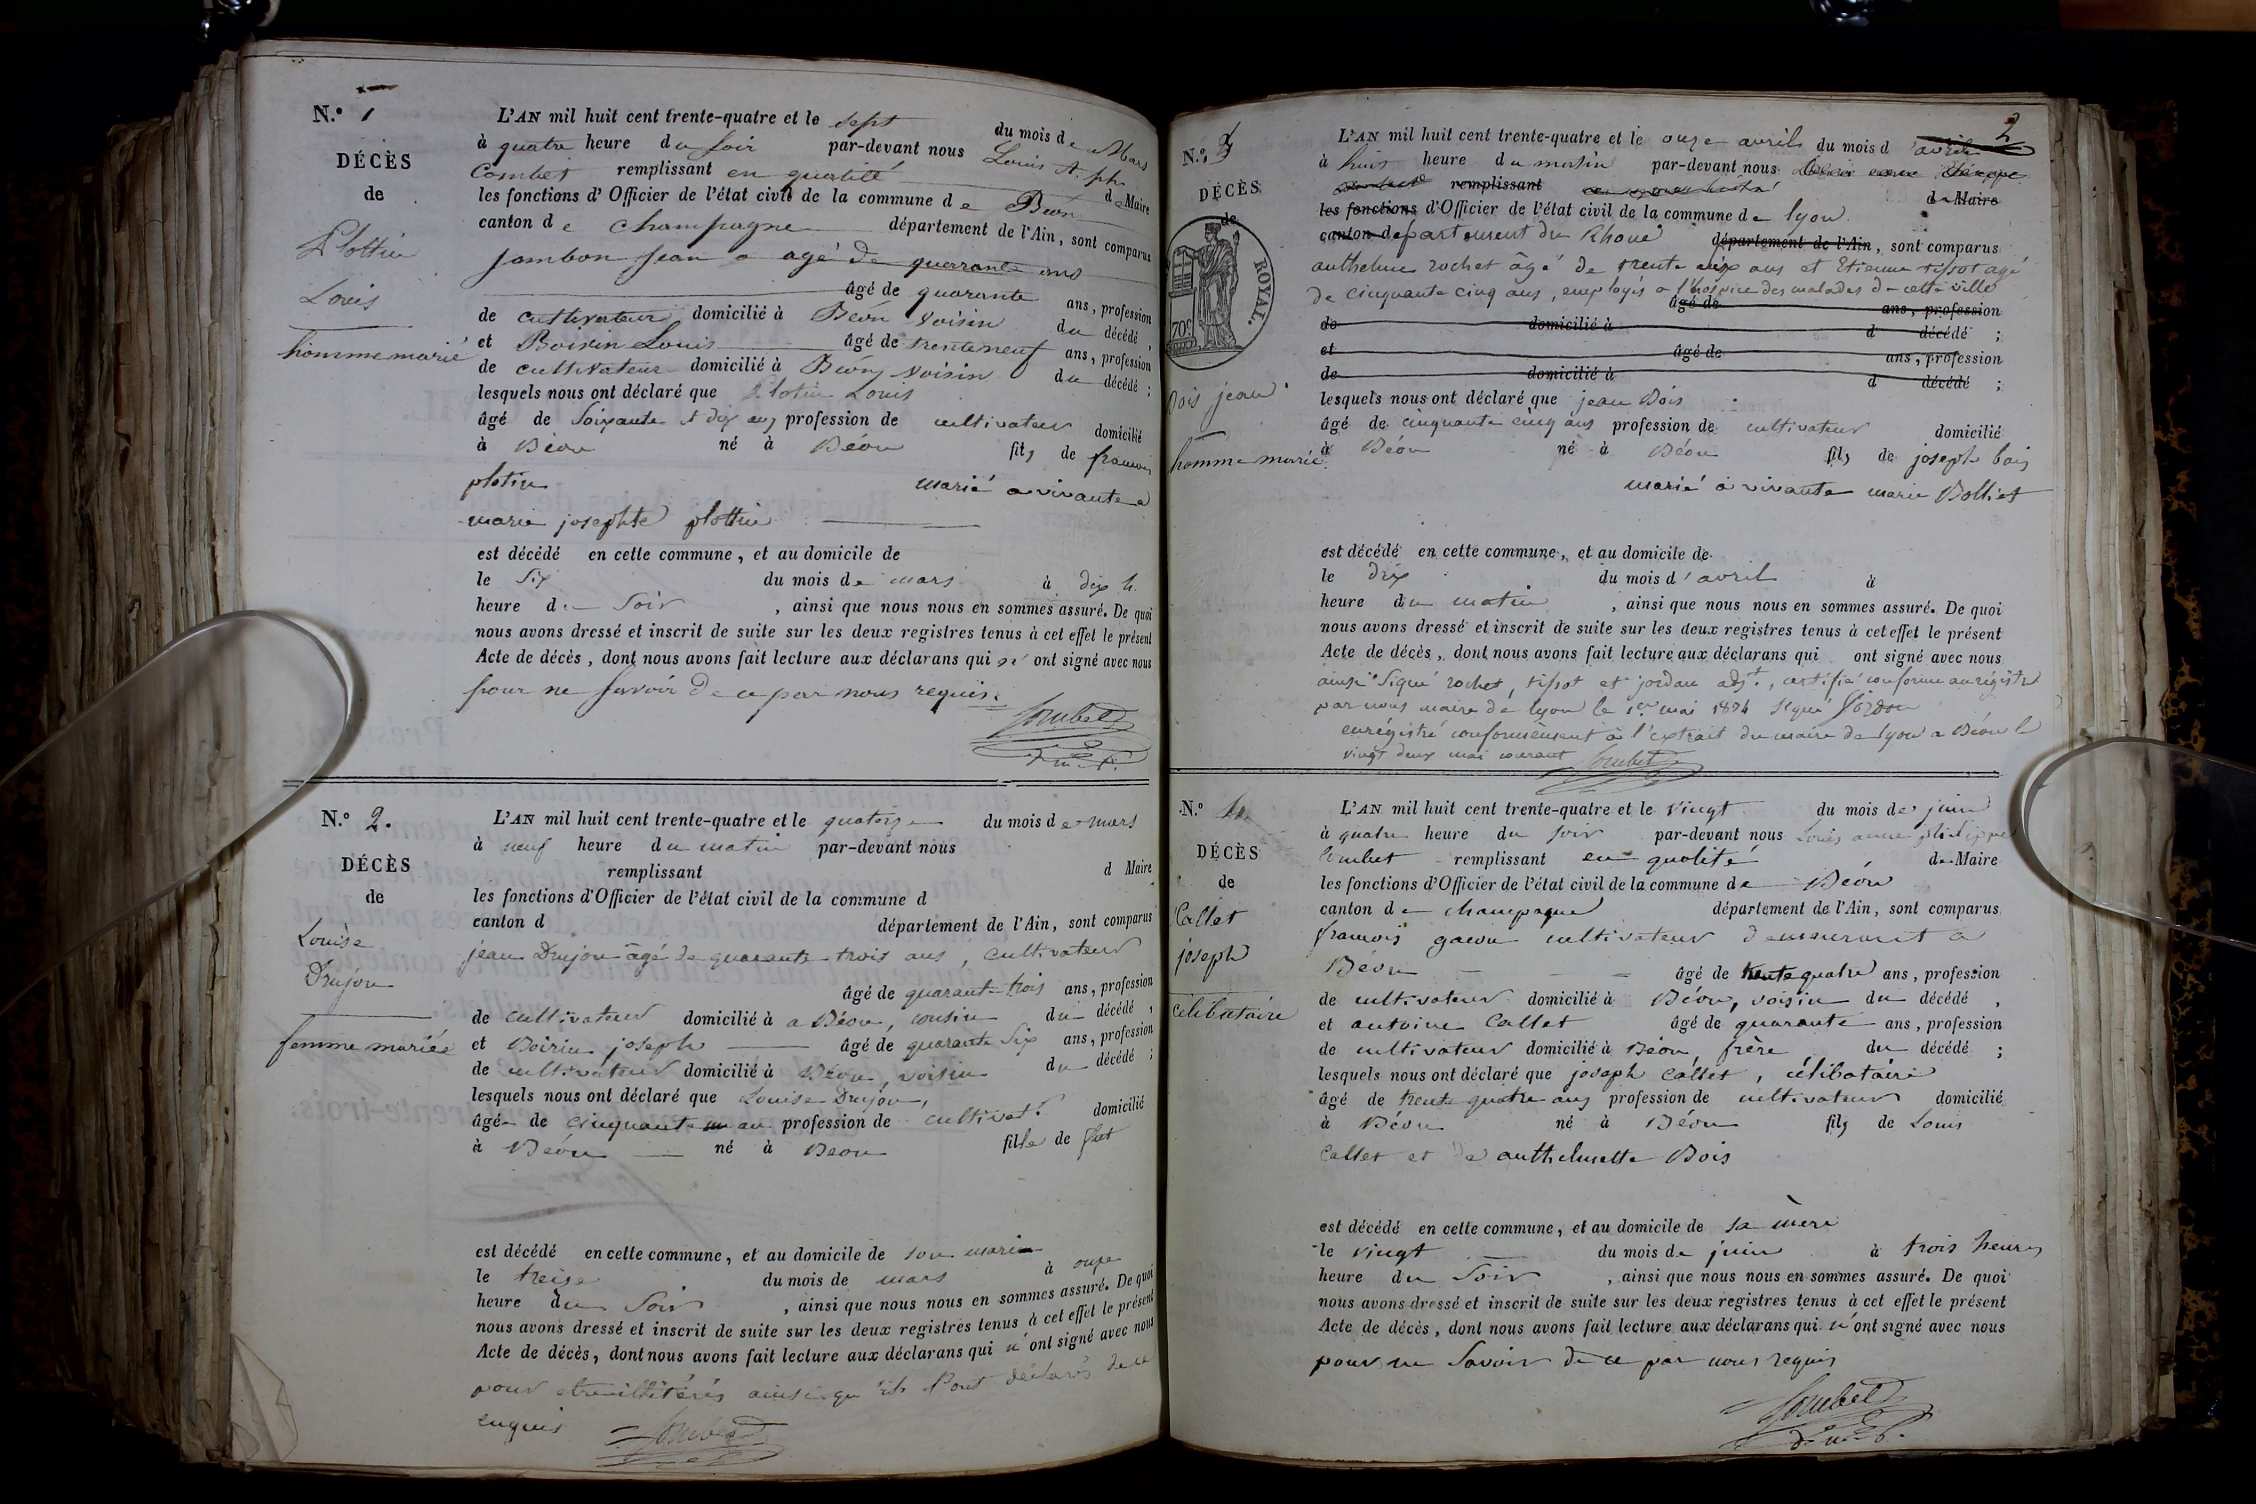 N.º 1
DÉCÈS
de
Plottin
Louis
homme marié
L'AN mil huit cent trente-quatre et le sept du mois de Mars
à quatre heure du soir par-devant nous Louis A. ph.
Combet remplissant en qualité de Maire
les fonctions d'Officier de l'état civil de la commune de Béon
canton de Champagne département de l'Ain, sont comparus
Jambon Jean agé de quarante ans
âgé de quarante ans, profession
de cultivateur domicilié à Béon voisin du décédé,
et Boirin Louis âgé de trente neuf ans, profession
de cultivateur domicilié à Béon, voisin du décédé;
lesquels nous ont déclaré que Plotin Louis
âgé de soixante et dix ans profession de cultivateur domicilié
à Béon né à Béon fils de francois
plotin marié a vivante
marie josephte plottin
est décédé en cette commune, et au domicile de
le six du mois de mars à dix h.
heure du soir, ainsi que nous nous en sommes assuré. De quoi
nous avons dressé et inscrit de suite sur les deux registres tenus à cet effet le présent
Acte de décès, dont nous avons fait lecture aux déclarans qui n'ont signé avec nous
pour ne savoir de ce par nous requis.
Combet
N.º 2.
DÉCÈS
de
Louise
Drujon
femme mariée
L'AN mil huit cent trente-quatre et le quatorze du mois de mars
à neuf heure du matin par-devant nous
remplissant d Maire
les fonctions d'Officier de l'état civil de la commune d
canton d département de l'Ain, sont comparus
jean Drujon âgé de quarante trois ans, cultivateur
âgé de quarante trois ans, profession
de cultivateur domicilié à a Béon, cousin du décédé,
et Boirin joseph âgé de quarante six ans, profession
de cultivateur domicilié à Béon, voisin du décédé;
lesquels nous ont déclaré que Louise Drujon,
âgé de cinquante un an profession de cultivat.r domicilié
à Béon né à Beon fille de
est décédé en cette commune, et au domicile de son mari
le treize du mois de mars à onze
heure du soir, ainsi que nous nous en sommes assuré. De quoi
nous avons dressé et inscrit de suite sur les deux registres tenus à cet effet le présent
Acte de décès, dont nous avons fait lecture aux déclarans qui n'ont signé avec nous
pour etre illitérés ainsi qu'ils l'ont déclaré de ce
enquis Combet
2
N.º 3
DÉCÈS
de
ROYAL.
70c
Bois jean
homme marié
L'AN mil huit cent trente-quatre et le onze avril du mois d'avril
à huit heure du matin par-devant nous
remplissant de Maire
les fonctions d'Officier de l'état civil de la commune de lyon
canton departement du Rhone département de l'Ain, sont comparus
anthelme rochet âgé de trente six ans et Etienne tissot agé
de cinquante cinq ans, employés a l'hospice des malades de cette ville
âgé de ans, profession
de domicilié à d décédé;
et âgé de ans, profession
de domicilié à d décédé;
lesquels nous ont déclaré que jean Bois
âgé de cinquante cinq ans profession de cultivateur domicilié
à Béon né à Béon fils de joseph bois
marié à vivante marie Bolliet
est décédé en cette commune, et au domicile de
le dix du mois d'avril à
heure du matin, ainsi que nous nous en sommes assuré. De quoi
nous avons dressé et inscrit de suite sur les deux registres tenus à cet effet le présent
Acte de décès, dont nous avons fait lecture aux déclarans qui ont signé avec nous
ainsi signé rochet, tissot et jordan adj.t, certifié conforme au régistre
par nous maire de lyon le 1er mai 1834 signé
enrégistré conformément à l'extrait du maire de lyon a Béon le
vingt deux mai courant Combet
N.º 4.
DÉCÈS
de
Callet
joseph
célibataire
L'AN mil huit cent trente-quatre et le vingt du mois de juin
à quatre heure du soir par-devant nous Louis anne philippe
Combet remplissant en qualité de Maire
les fonctions d'Officier de l'état civil de la commune de Béon
canton de champagne département de l'Ain, sont comparus
francois gacon cultivateur demeurant a
Béon âgé de trente quatre ans, profession
de cultivateur domicilié à Béon, voisin du décédé,
et antoine Callet âgé de quarante ans, profession
de cultivateur domicilié à Béon, frère du décédé;
lesquels nous ont déclaré que joseph Callet, célibataire
âgé de trente quatre ans profession de cultivateur domicilié
à Béon né à Béon fils de Louis
Callet et de anthelmette Bois
est décédé en cette commune, et au domicile de sa mère
le vingt du mois de juin à trois heures
heure du soir, ainsi que nous nous en sommes assuré. De quoi
nous avons dressé et inscrit de suite sur les deux registres tenus à cet effet le présent
Acte de décès, dont nous avons fait lecture aux déclarans qui n'ont signé avec nous
pour ne savoir de ce par nous requis
Combet